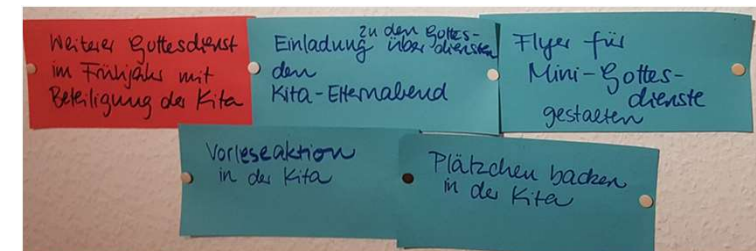 Weiterer Gottesdienst
im Frühjahr mit
Beteiligung der Kita
zu den Gottes-
Einladung über diensten
den
Kita-Elternabend
Flyer für
Mini-Gottes-
dienste
gestalten
Vorleseaktion
in der Kita
Plätzchen backen
in der Kita